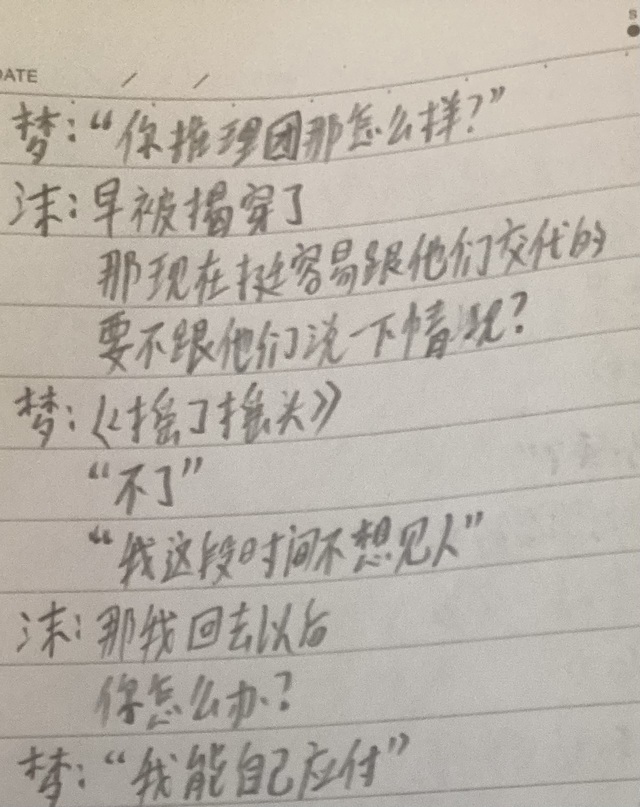 DATE / /
S
梦:“你推理团那怎么样?”
沫:早被揭穿了
那现在挺容易跟他们交代的
要不跟他们说一下情况?
梦:《摇了摇头》
“不了”
“我这段时间不想见人”
沫:那我回去以后
你怎么办?
梦:“我能自己应付”